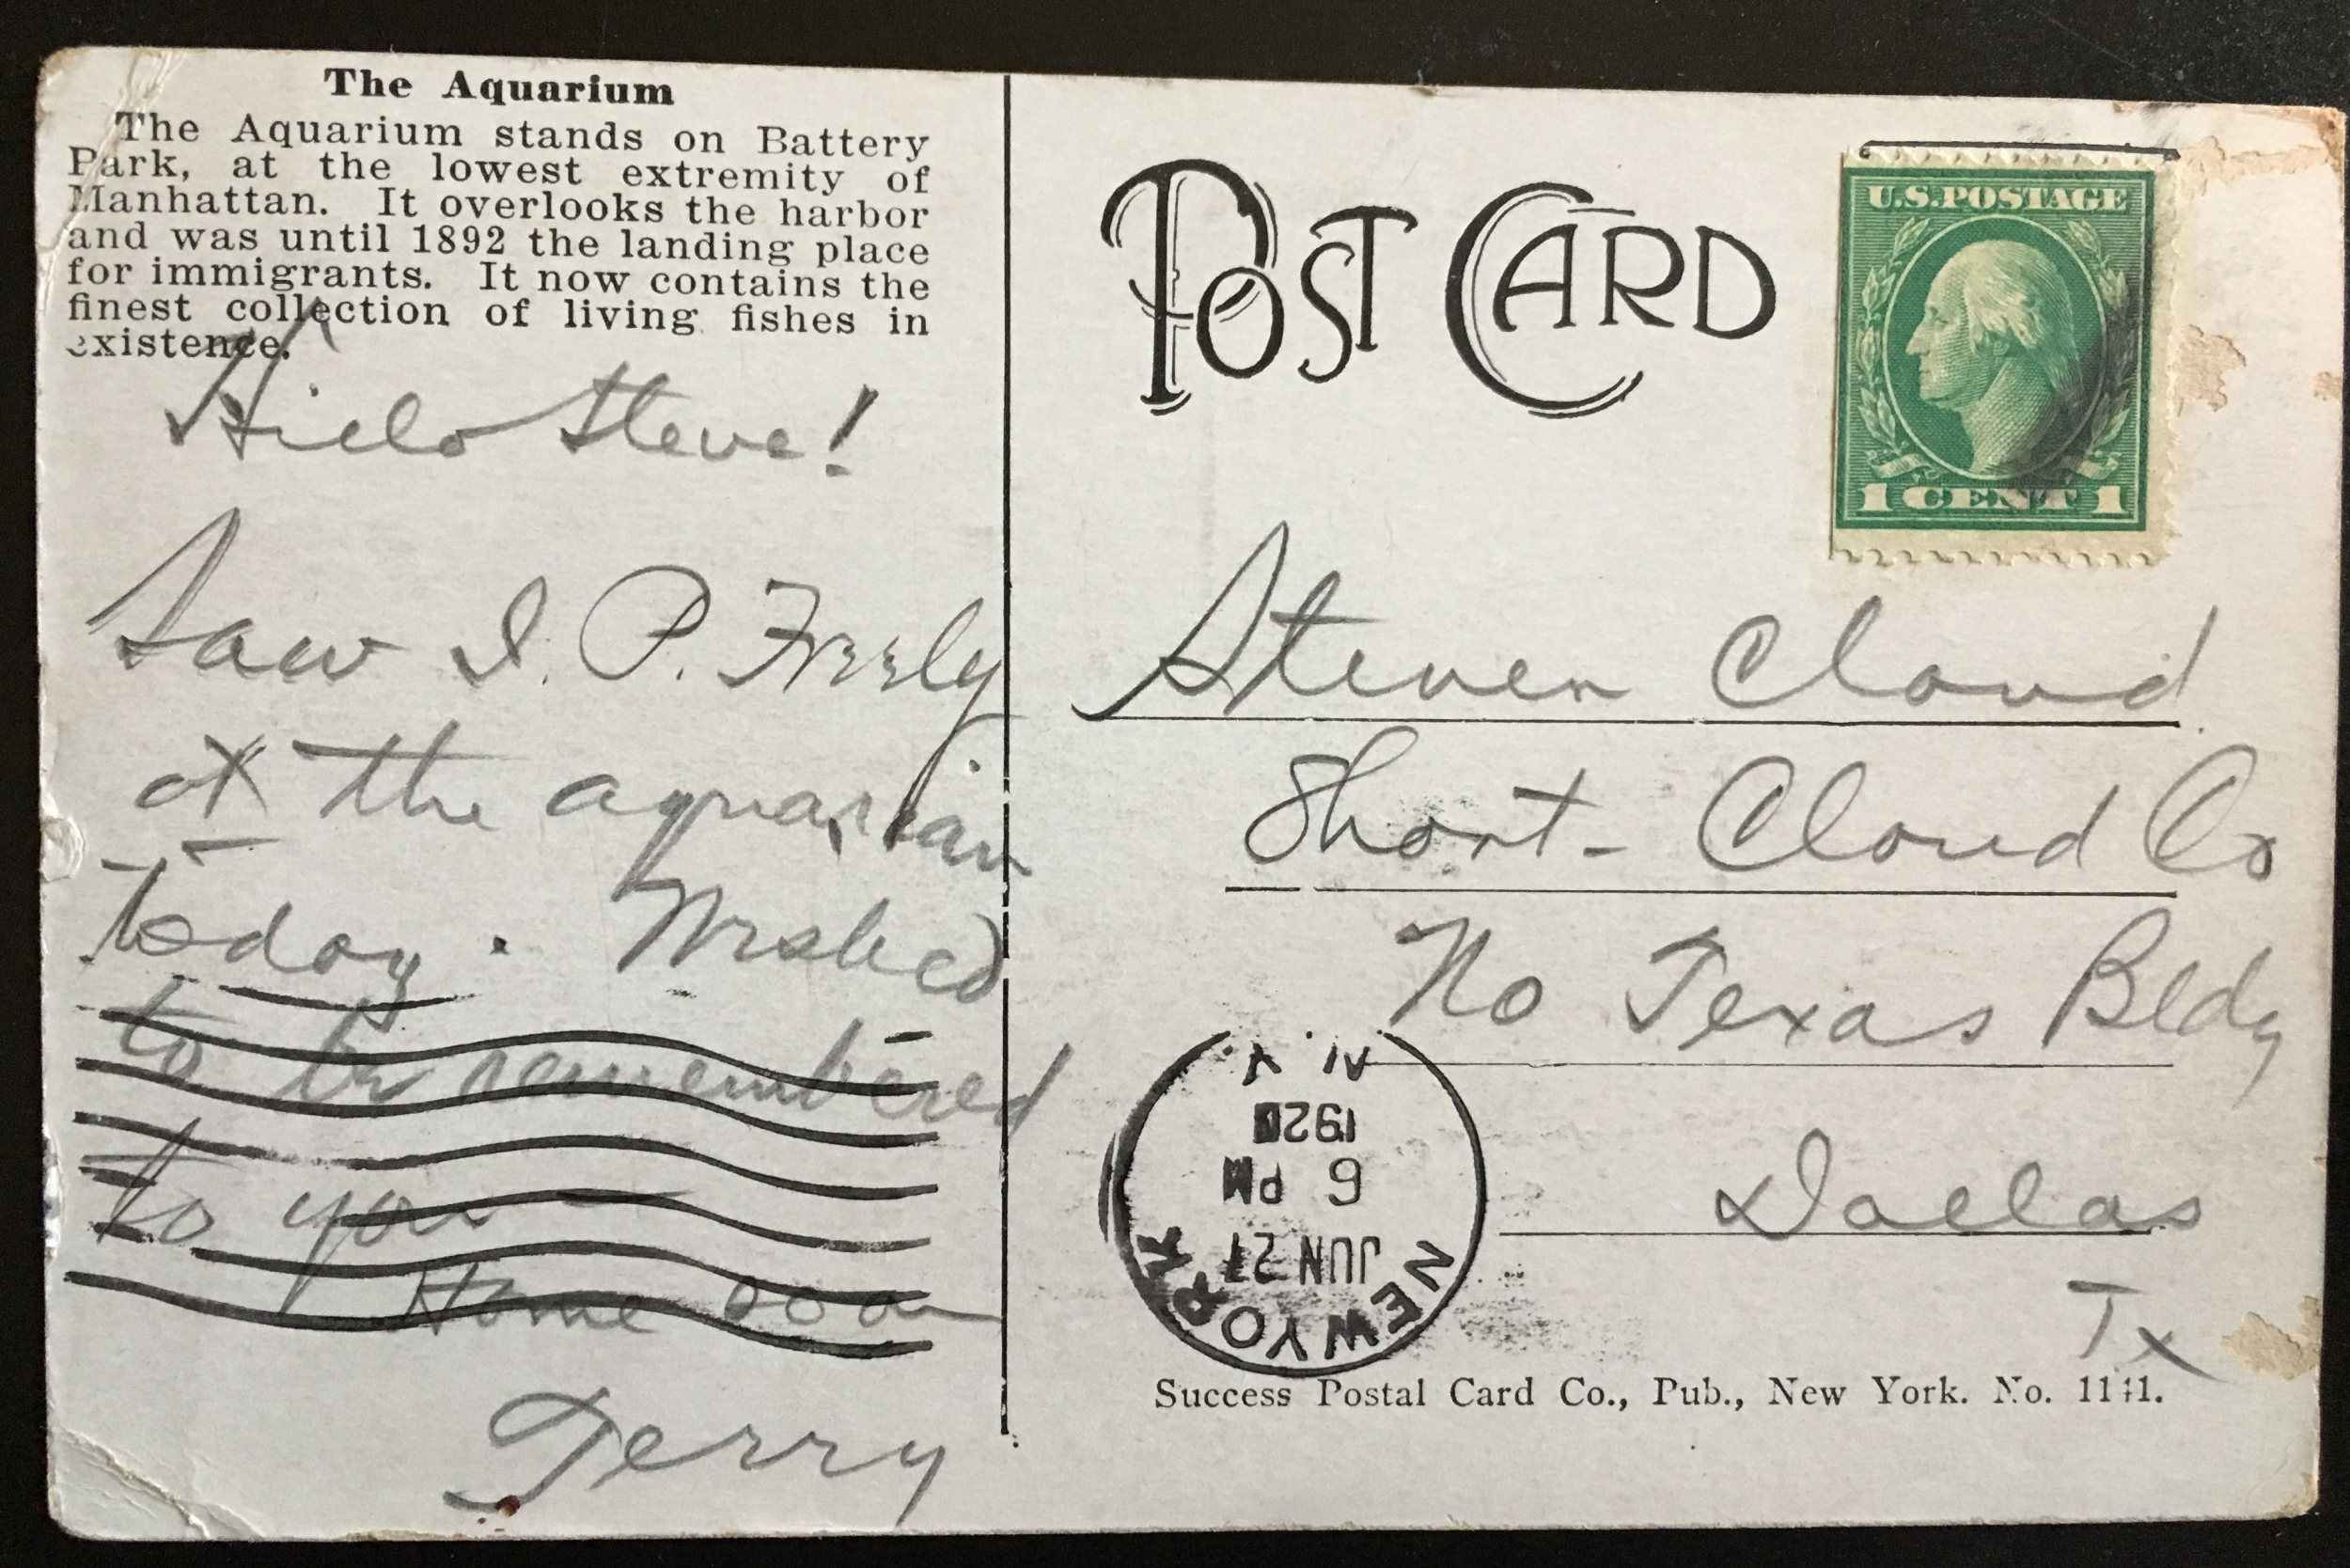 The Aquarium
The Aquarium stands on Battery
Park, at the lowest extremity of
Manhattan. It overlooks the harbor
and was until 1892 the landing place
for immigrants. It now contains the
finest collection of living fishes in
existence.
Hielo Steve!
Saw I. P. Freely
at the aquarian
today. Wished
to be remembered
to you –
Home soon
Terry
POST CARD
U.S. POSTAGE
1 CENT 1
Steven Cloud
Short-Cloud Co
No Texas Bldg
Dallas
Tx
NEW YORK
JUN 27
6 PM
1920
N.Y.
Success Postal Card Co., Pub., New York. No. 1141.